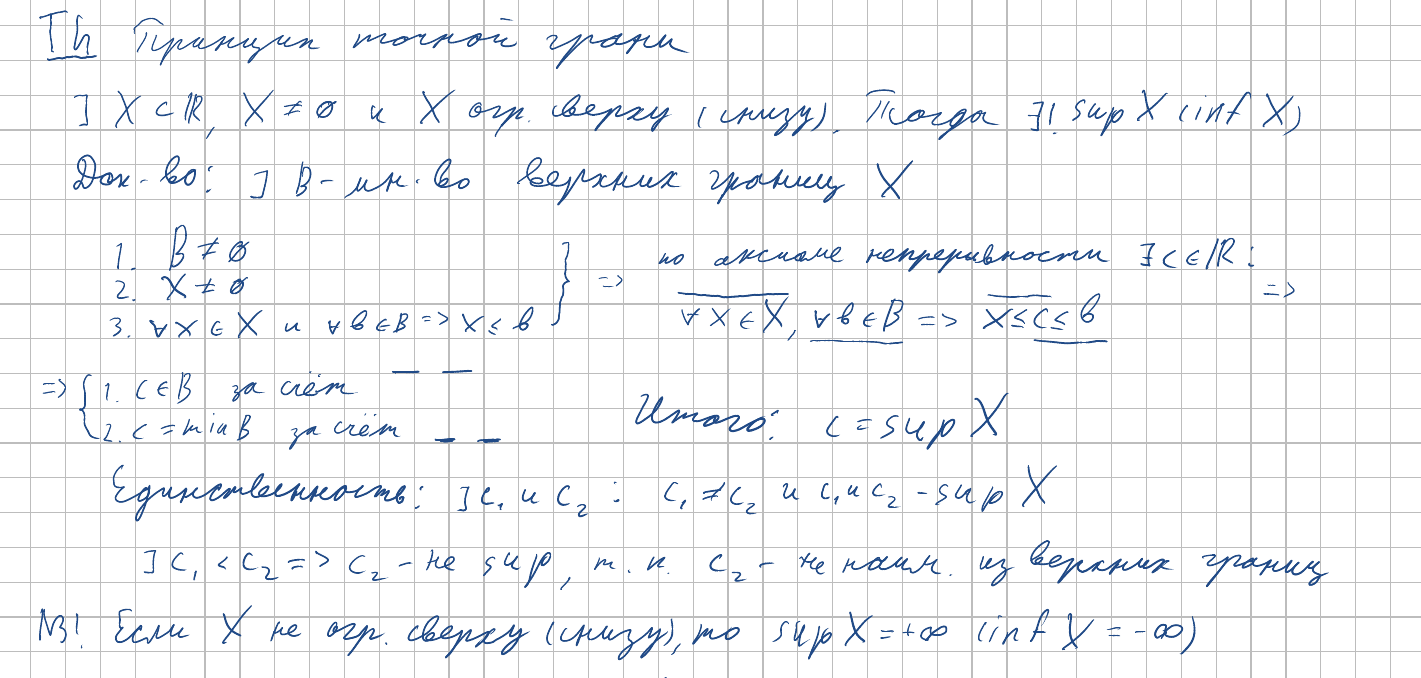 Th Принцип точной грани
] X ⊂ ℝ, X ≠ ∅ и X огр. сверху (снизу). Тогда ∃! sup X (inf X)
Док-во: ] B - мн-во верхних границ X
1. B ≠ ∅
2. X ≠ ∅
3. ∀x ∈ X и ∀b ∈ B => x ≤ b
=> по аксиоме непрерывности ∃ c ∈ ℝ:
∀x ∈ X, ∀b ∈ B => x ≤ c ≤ b =>
=> { 1. c ∈ B за счёт ‾ ‾
2. c = min B за счёт _ _
Итого: c = sup X
Единственность: ] c₁ и c₂ : c₁ ≠ c₂ и c₁ и c₂ - sup X
] c₁ < c₂ => c₂ - не sup, т. к. c₂ - не наим. из верхних границ
NB! Если X не огр. сверху (снизу), то sup X = +∞ (inf X = -∞)